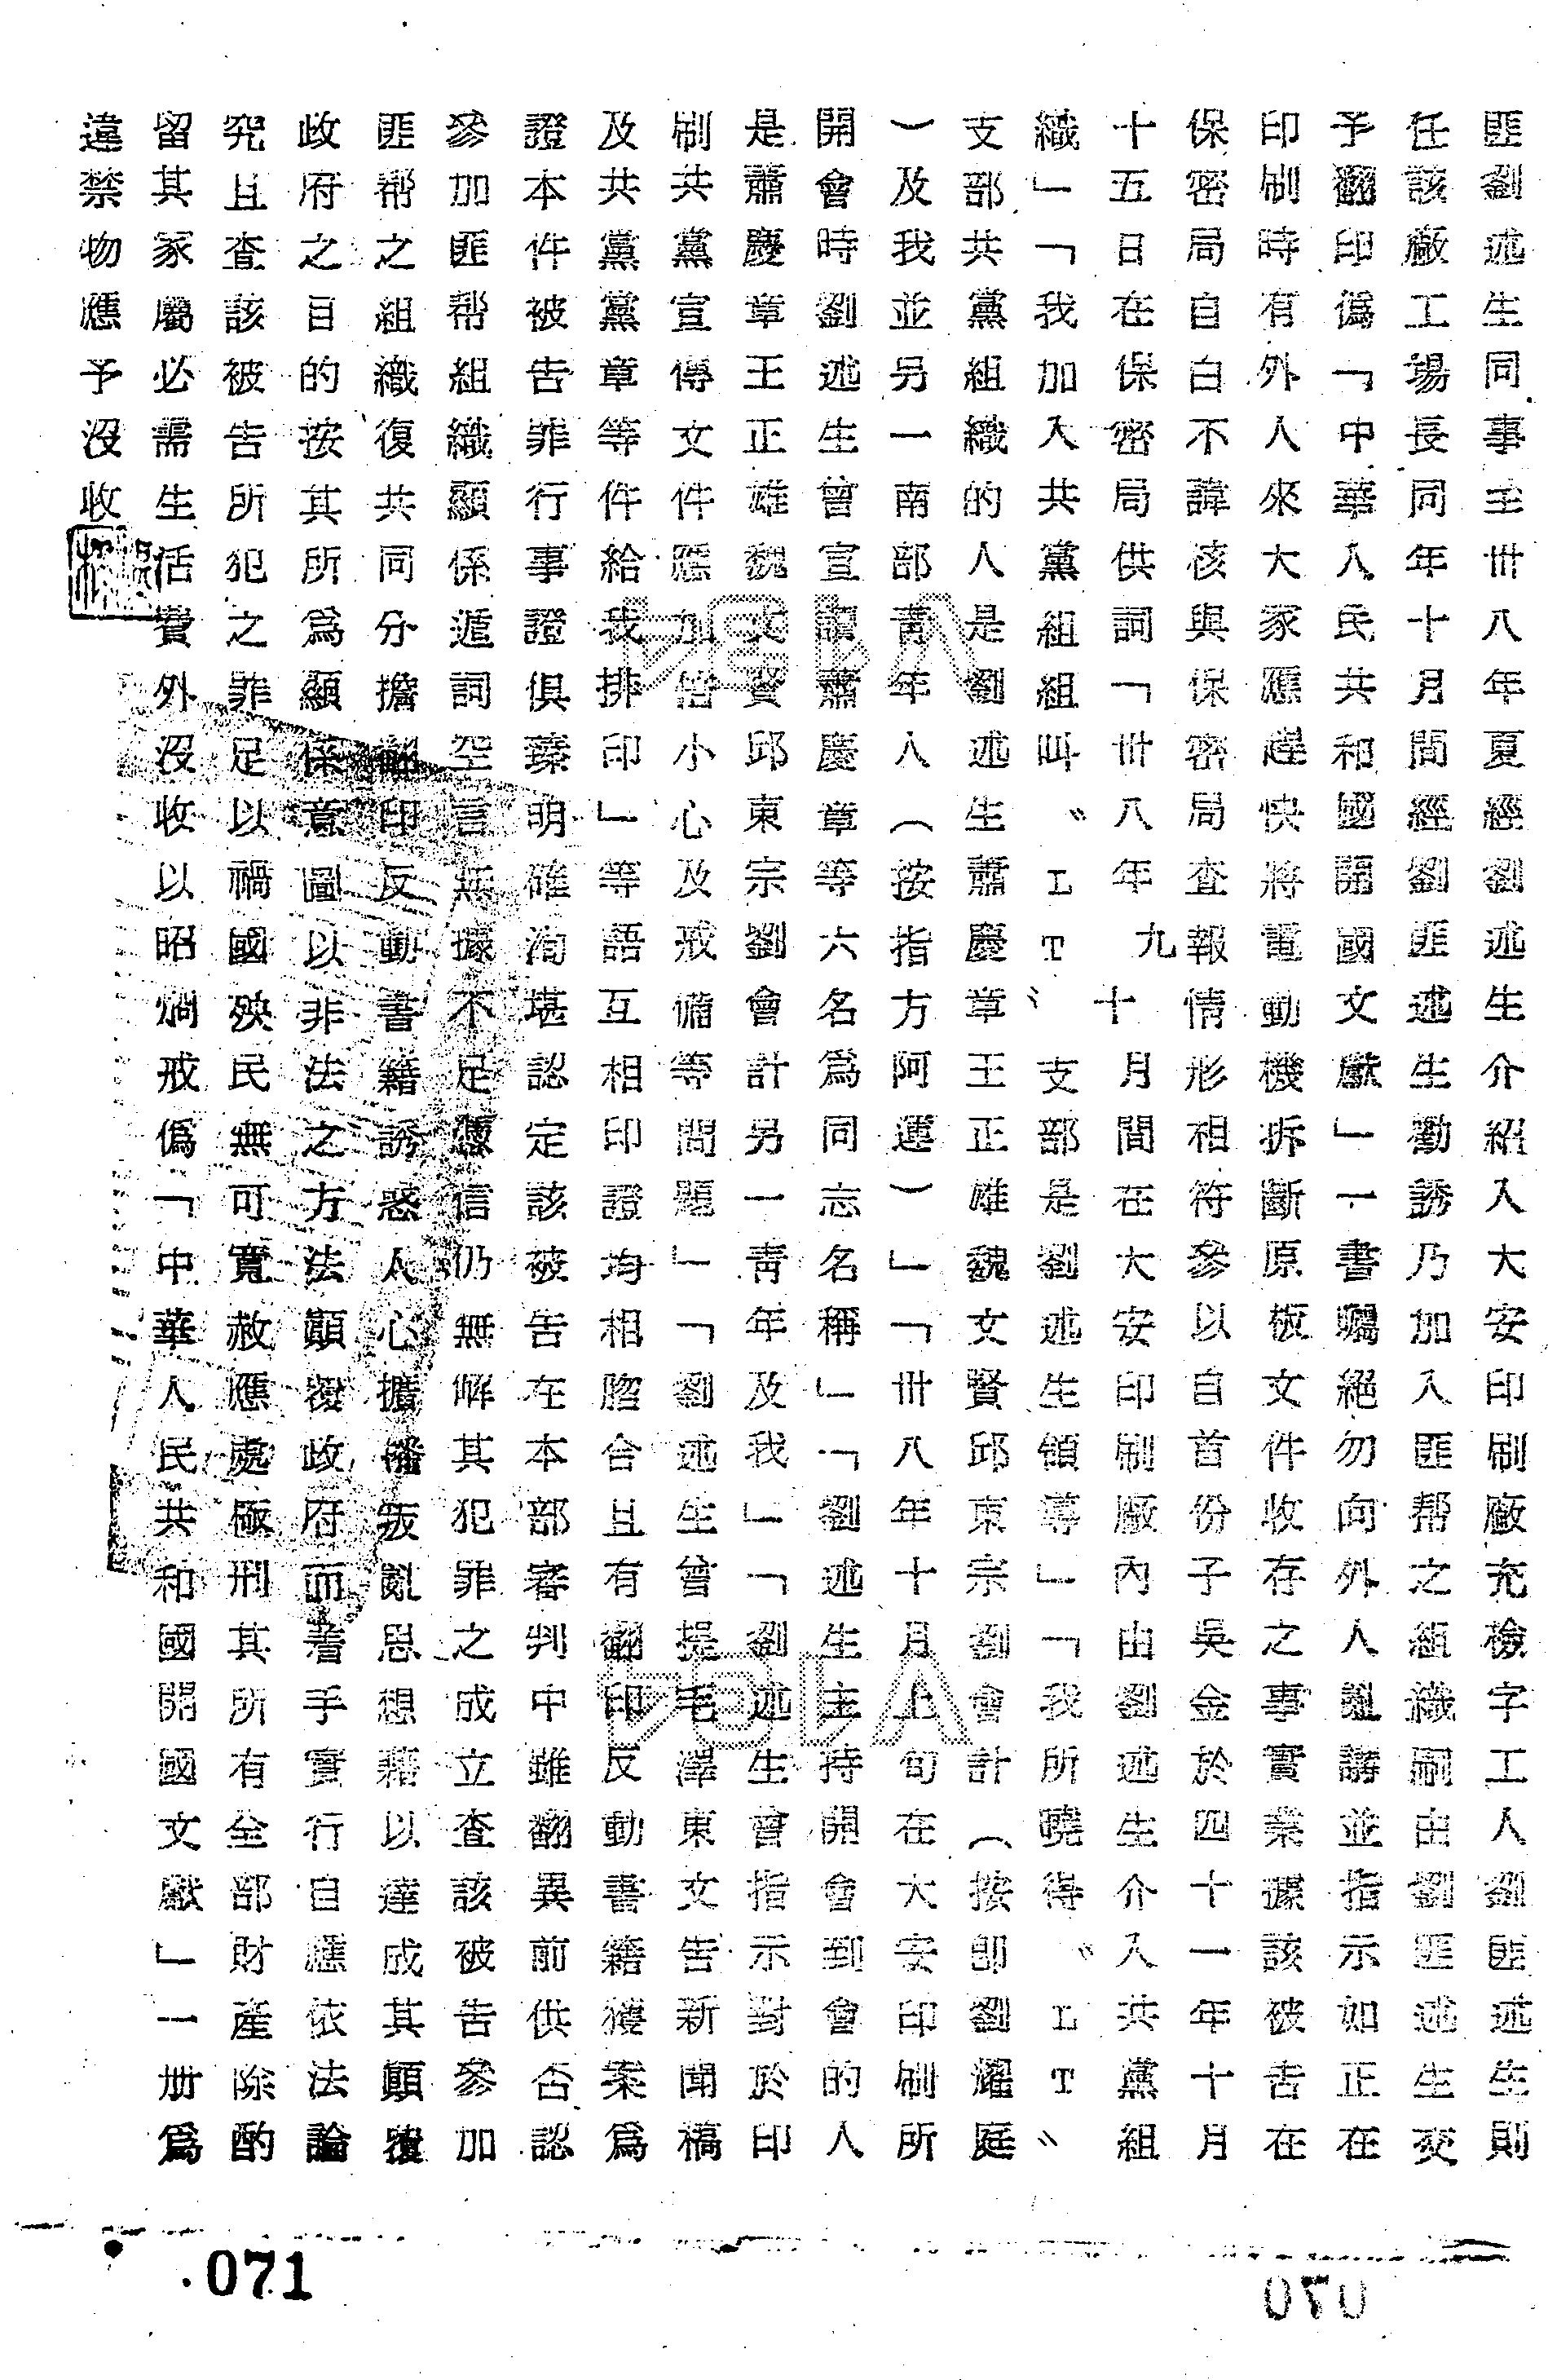 匪劉述生同事主卅八年夏經劉述生介紹入大安印刷廠充檢字工人劉匪述生則
任該廠工場長同年十月間經劉匪述生勸誘乃加入匪幫之組織嗣由劉匪述生交
予翻印偽「中華人民共和國開國文獻」一書囑絕勿向外人亂講並指示如正在
印刷時有外人來大家應趕快將電動機拆斷原板文件收存之事實業據該被告在
保密局自白不諱核與保密局查報情形相符參以自首份子吳金於四十一年十月
十五日在保密局供詞「卅八年九十月間在大安印刷廠內由劉述生介入共黨組
織」「我加入共黨組組叫〝LT〞支部是劉述生領導」「我所曉得〝LT〞
支部共黨組織的人是劉述生蕭慶章王正雄魏文賢邱東宗劉會計(按即劉耀庭
)及我並另一南部青年人(按指方阿運)」「卅八年十月上旬在大安印刷所
開會時劉述生曾宣讀蕭慶章等六名為同志名稱」「劉述生主持開會到會的人
是蕭慶章王正雄魏文賢邱東宗劉會計另一青年及我」「劉述生曾指示對於印
刷共黨宣傳文件應加倍小心及戒備等問題」「劉述生曾提毛澤東文告新聞稿
及共黨黨章等件給我排印」等語互相印證均相脗合且有翻印反動書籍獲案為
證本件被告罪行事證俱臻明確洵堪認定該被告在本部審判中雖翻異前供否認
參加匪幫組織顯係遁詞空言無據不足憑信仍無解其犯罪之成立查該被告參加
匪幫之組織復共同分擔翻印反動書籍誘惑人心擴播叛亂思想藉以達成其顛覆
政府之目的按其所為顯係意圖以非法之方法顛覆政府而著手實行自應依法論
究且查該被告所犯之罪足以禍國殃民無可寬赦應處極刑其所有全部財產除酌
留其家屬必需生活費外沒收以昭烱戒偽「中華人民共和國開國文獻」一冊為
違禁物應予沒收
071
070